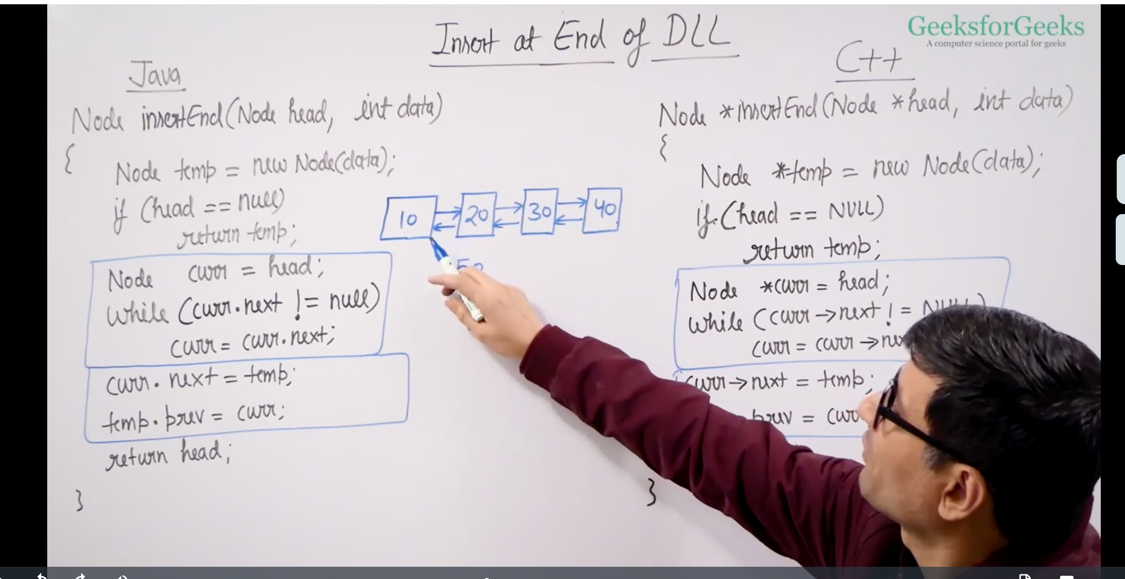 GeeksforGeeks
A computer science portal for geeks
Insert at End of DLL
Java
Node insertEnd(Node head, int data)
{
Node temp = new Node(data);
if (head == null)
return temp;
Node curr = head;
while (curr.next != null)
curr = curr.next;
curr.next = temp;
temp.prev = curr;
return head;
}
10 20 30 40
C++
Node *insertEnd(Node *head, int data)
{
Node *temp = new Node(data);
if (head == NULL)
return temp;
Node *curr = head;
while (curr→next !=
curr = curr →
curr→next = temp;
prev =
}